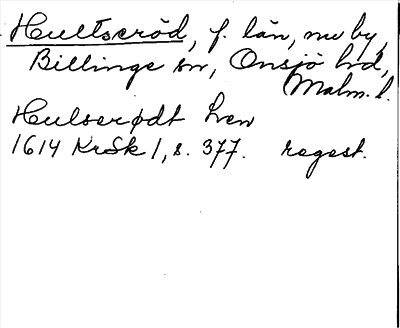 Hultseröd, f. län, nu by,
Billinge sn, Onsjö hrd,
Malm. l.
Hulserødt hren
1614 KrSk 1, s. 377. regest.